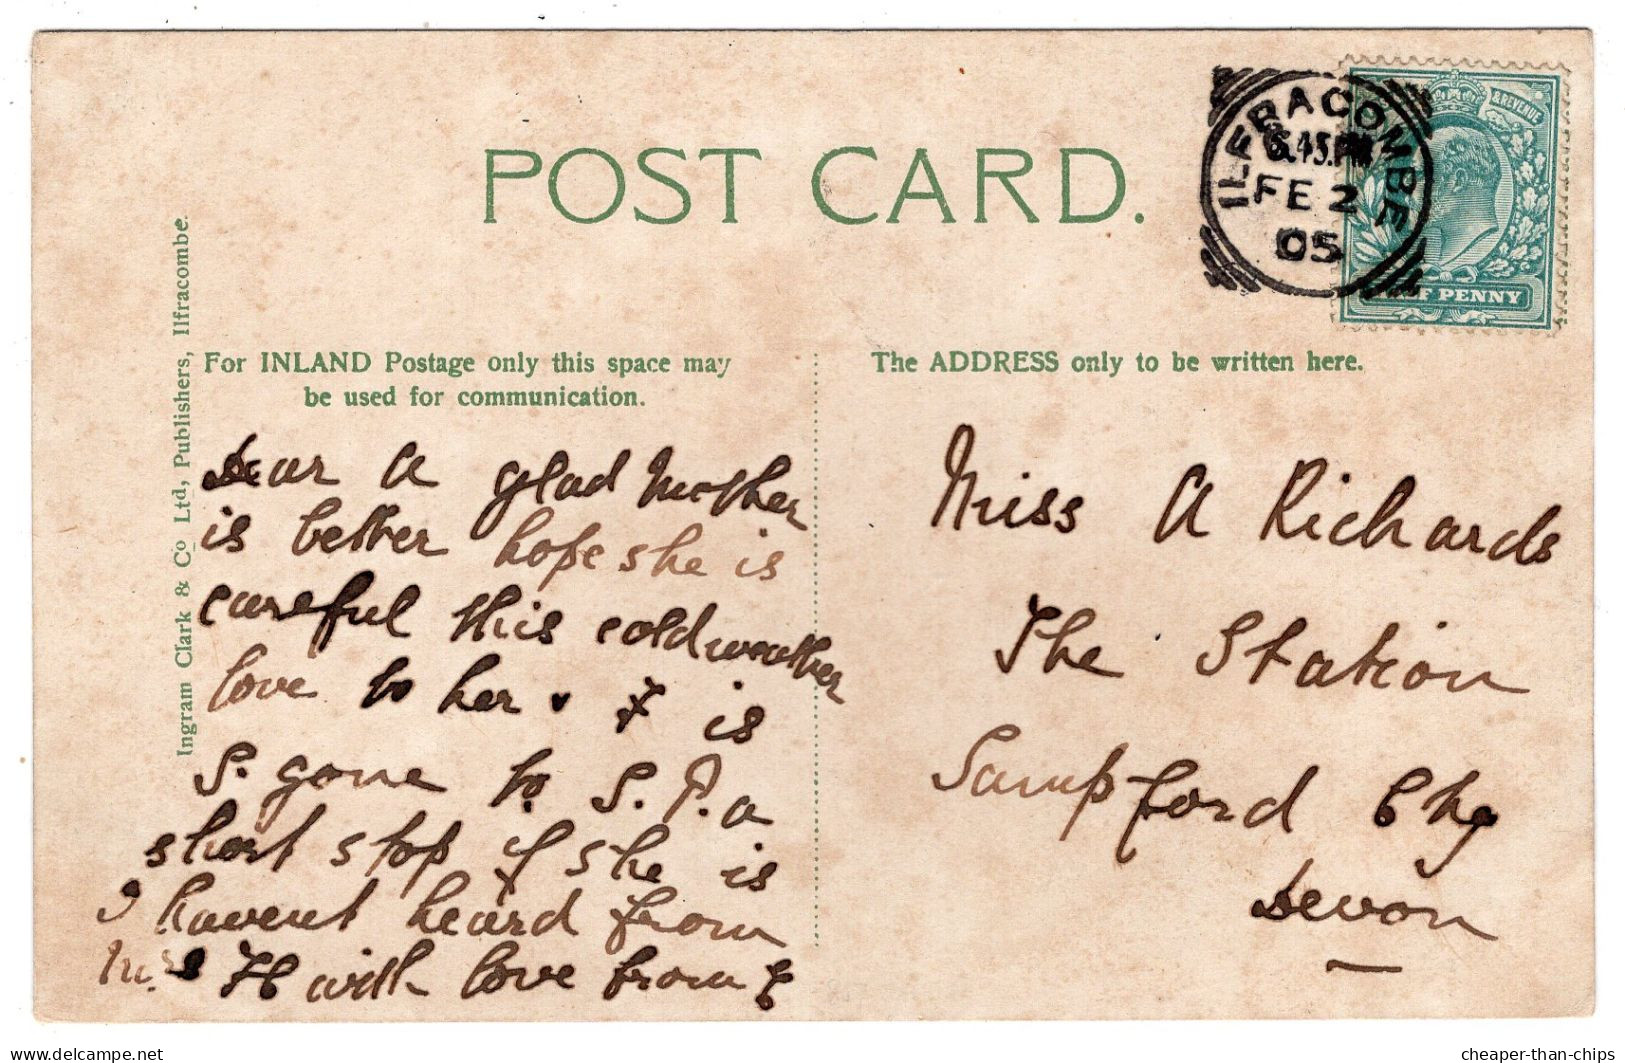 POST CARD.
ILFRACOMBE
6.45.PM
FE 2
05
& REVENUE
HALF PENNY
Ingram Clark & Co Ltd, Publishers, Ilfracombe.
For INLAND Postage only this space may
be used for communication.
The ADDRESS only to be written here.
Dear A glad Mother
is better hope she is
careful this cold weather
love to her. F is
S. gone to S. P. a
short stop if she is
I havent heard from
Mrs H with love from E
Miss A Richards
The Station
Sampford
Devon
www.delcampe.net
cheaper-than-chips